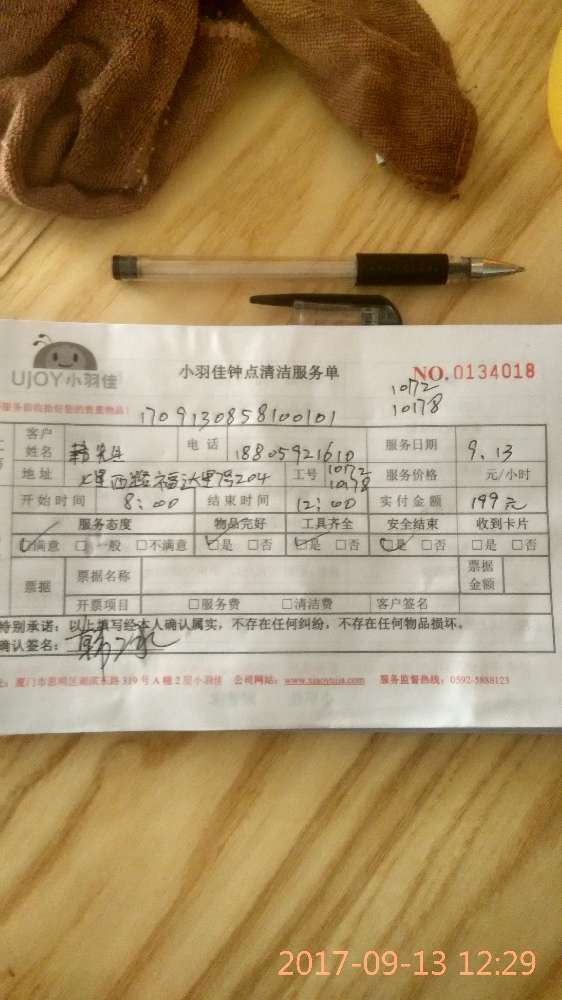 UJOY小羽佳
小羽佳钟点清洁服务单
NO.0134018
10172
10178
服务前收拾好您的贵重物品!
1709130858100101
客户姓名 韩先生 电话 18805921610 服务日期 9.13
地址 204 工号 10172 10178 服务价格 元/小时
开始时间 8:00 结束时间 12:00 实付金额 199元
服务态度 物品完好 工具齐全 安全结束 收到卡片
☑满意 □一般 □不满意 ☑是 □否 ☑是 □否 ☑是 □否 □是 □否
票据 票据名称 票据金额
开票项目 □服务费 □清洁费 客户签名
特别承诺:以上填写经本人确认属实,不存在任何纠纷,不存在任何物品损坏。
确认签名:
厦门市思明区湖滨东路319号A幢2层小羽佳 公司网站:www.xiaoyujia.com 服务监督热线:0592-5888123
2017-09-13 12:29